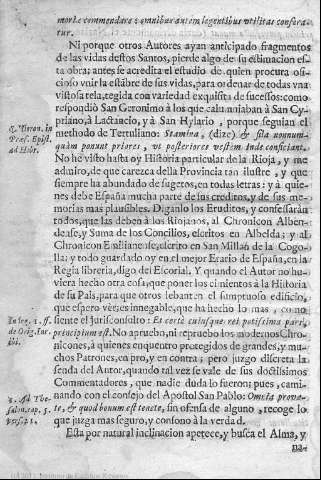 morie commendare: omnibus autem legentibus utilitas conferatur.
Ni porque otros Autores ayan anticipado fragmentos
de las vidas destos Santos, pierde algo de su estimacion esta
obra; antes se acredita el estudio de quien procura oficioso
vnir la estãbre de sus vidas, para ordenar de todas vna
vistosa tela, tegida con variedad exquisita de sucessos: como
respondiò San Geronimo à los que calumniaban à San Cypriano,
à Lactancio, y à San Hylario, porque seguian el
methodo de Tertuliano: Stamina, (dize) & fila nonnumquàm
ponunt priores, ut posteriores vestem inde conficiant.
No he visto hasta oy Historia particular de la Rioja, y me
admiro, de que carezca della Provincia tan ilustre, y que
siempre ha abundado de sugetos, en todas letras: y à quienes
debe España mucha parte de sus creditos, y de sus memorias
mas plausibles. Diganlo los Eruditos, y confessaràn
todos, que las deben à los Riojanos, al Chronicon Albendense,
y Suma de los Concilios, escritos en Albelda; y al
Chronicon Emilianense, escrito en San Millàn de la Cogolla;
y todo guardado oy en el mejor Erario de España, en la
Regia libreria, digo del Escorial. Y quando el Autor no huviera
hecho otra cosa, que poner los cimientos à la Historia
de su Pais, para que otros lebanten el sumptuoso edificio,
que espero vèr; es innegable, que ha hecho lo mas, como
siente el Jurisconsulto: Et certè cuiusque rei potissima pars,
principium est. No apruebo, ni repruebo los modernos Chronicones,
à quienes encuentro protegidos de grandes, y muchos
Patrones, en pro, y en contra; pero juzgo discreta la
senda del Autor, quando tal vez se vale de sus doctissimos
Commentadores, que nadie duda lo fueron; pues, caminando
con el consejo del Apostol San Pablo: Omnia probate,
& quod bonum est tenete, sin ofensa de alguno, recoge lo
que juzga mas seguro, y confono à la verdad.
Esta por natural inclinacion apetece, y busca el Alma, y
Præf. Epist.
ad Hebr.
de Orig. Iur.
ibi.